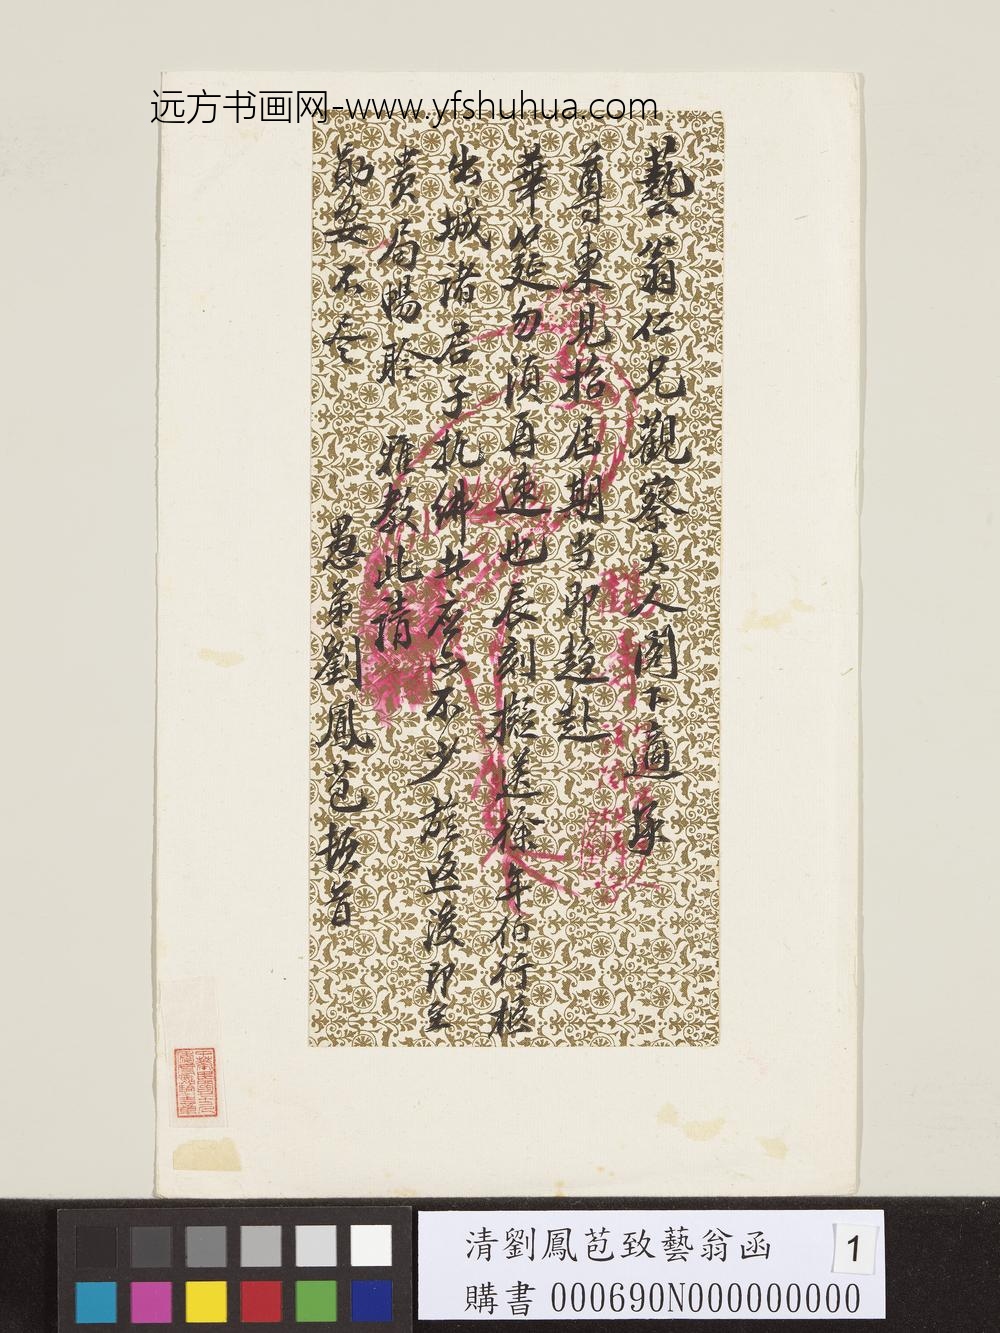 远方书画网-www.yfshuhua.com
藝翁仁兄觀察大人閣下適接
尊柬見招屆期當即趨赴
華筵勿須再速也辰刻擬送徐年伯行柩
出城諸君子執紼其应必不少於返後即至
貴局暢聆 雅教此請
勛安不盡
愚弟劉鳳苞頓首
清劉鳳苞致藝翁函
1
購書 000690N000000000